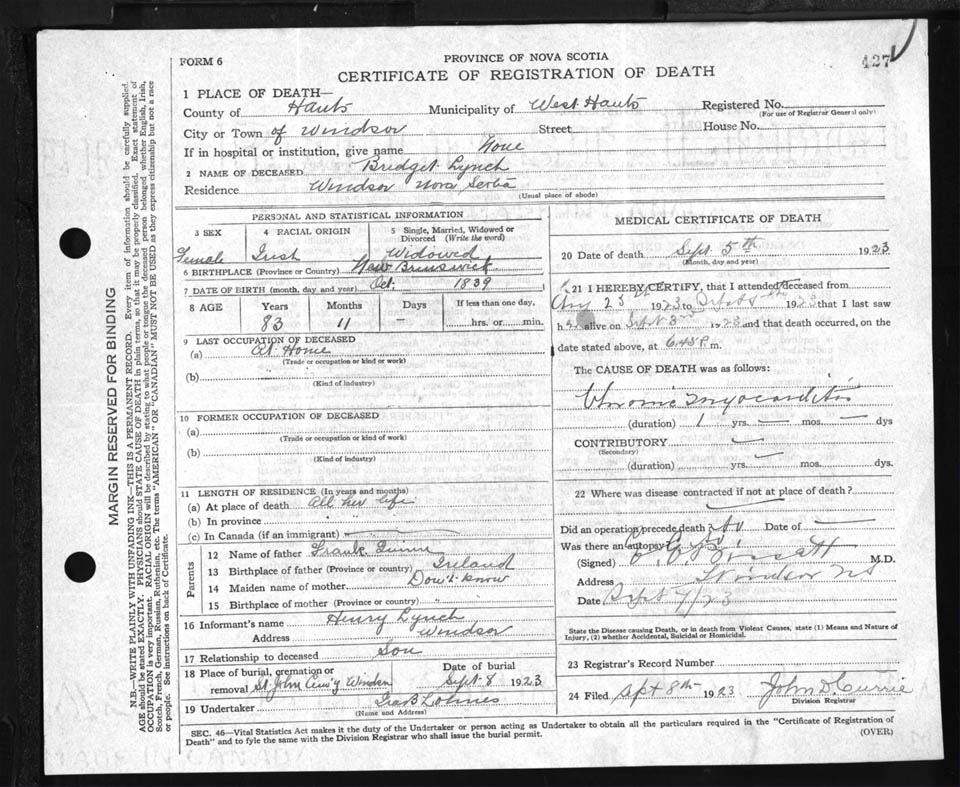 FORM 6
PROVINCE OF NOVA SCOTIA
427
CERTIFICATE OF REGISTRATION OF DEATH
1 PLACE OF DEATH—
County of Hants Municipality of West Hants Registered No.
(For use of Registrar General only)
City or Town of Windsor Street House No.
If in hospital or institution, give name None
2 NAME OF DECEASED Bridget Lynch
Residence Windsor Nova Scotia
(Usual place of abode)
PERSONAL AND STATISTICAL INFORMATION
3 SEX 4 RACIAL ORIGIN 5 Single, Married, Widowed or Divorced (Write the word)
Female Irish Widowed
6 BIRTHPLACE (Province or Country) New Brunswick
7 DATE OF BIRTH (month, day and year) Oct. 1839
8 AGE Years Months Days If less than one day,
83 11 — hrs. or min.
9 LAST OCCUPATION OF DECEASED
(a) At Home
(Trade or occupation or kind or work)
(b)
(Kind of industry)
10 FORMER OCCUPATION OF DECEASED
(a)
(Trade or occupation or kind of work)
(b)
(Kind of industry)
11 LENGTH OF RESIDENCE (In years and months)
(a) At place of death All her life
(b) In province " "
(c) In Canada (if an immigrant)
Parents
12 Name of father Frank Quinn
13 Birthplace of father (Province or country) Ireland
14 Maiden name of mother Don't know
15 Birthplace of mother (Province or country) "
16 Informant's name Henry Lynch
Address Windsor
17 Relationship to deceased Son
18 Place of burial, cremation or removal St John Cem'y Windsor
Date of burial Sept 8 1923
19 Undertaker
(Name and Address)
MEDICAL CERTIFICATE OF DEATH
20 Date of death Sept 5th 1923
(Month, day and year)
21 I HEREBY CERTIFY, that I attended deceased from
Aug 23 1923 to Sept 5th 1923 that I last saw
her alive on Sept 3rd 1923 and that death occurred, on the
date stated above, at 6.45 P.m.
The CAUSE OF DEATH was as follows:
Chronic Myocarditis
(duration) 1 yrs. — mos. — dys
CONTRIBUTORY —
(Secondary)
(duration) yrs. — mos. dys.
22 Where was disease contracted if not at place of death?
Did an operation precede death? No Date of —
Was there an autopsy? No
(Signed) M.D.
Address Windsor NS
Date Sept 7/23
State the Disease causing Death, or in death from Violent Causes, state (1) Means and Nature of
Injury, (2) whether Accidental, Suicidal or Homicidal.
23 Registrar's Record Number
24 Filed Sept 8th 1923 John D. Currie
Division Registrar
SEC. 46—Vital Statistics Act makes it the duty of the Undertaker or person acting as Undertaker to obtain all the particulars required in the "Certificate of Registration of
Death" and to fyle the same with the Division Registrar who shall issue the burial permit.
(OVER)
MARGIN RESERVED FOR BINDING
N.B.—WRITE PLAINLY WITH UNFADING INK—THIS IS A PERMANENT RECORD. Every item of information should be carefully supplied.
AGE should be stated EXACTLY. PHYSICIANS should STATE CAUSE OF DEATH in plain terms, so that it may be properly classified. Exact statement of
OCCUPATION is very important. RACIAL ORIGIN will be described by stating to what people or tongue the deceased person belonged whether English, Irish,
Scotch, French, German, Russian, Ruthenian, etc. The terms "AMERICAN" OR "CANADIAN" MUST NOT BE USED as they express citizenship but not a race
or people. See instructions on back of Certificate.